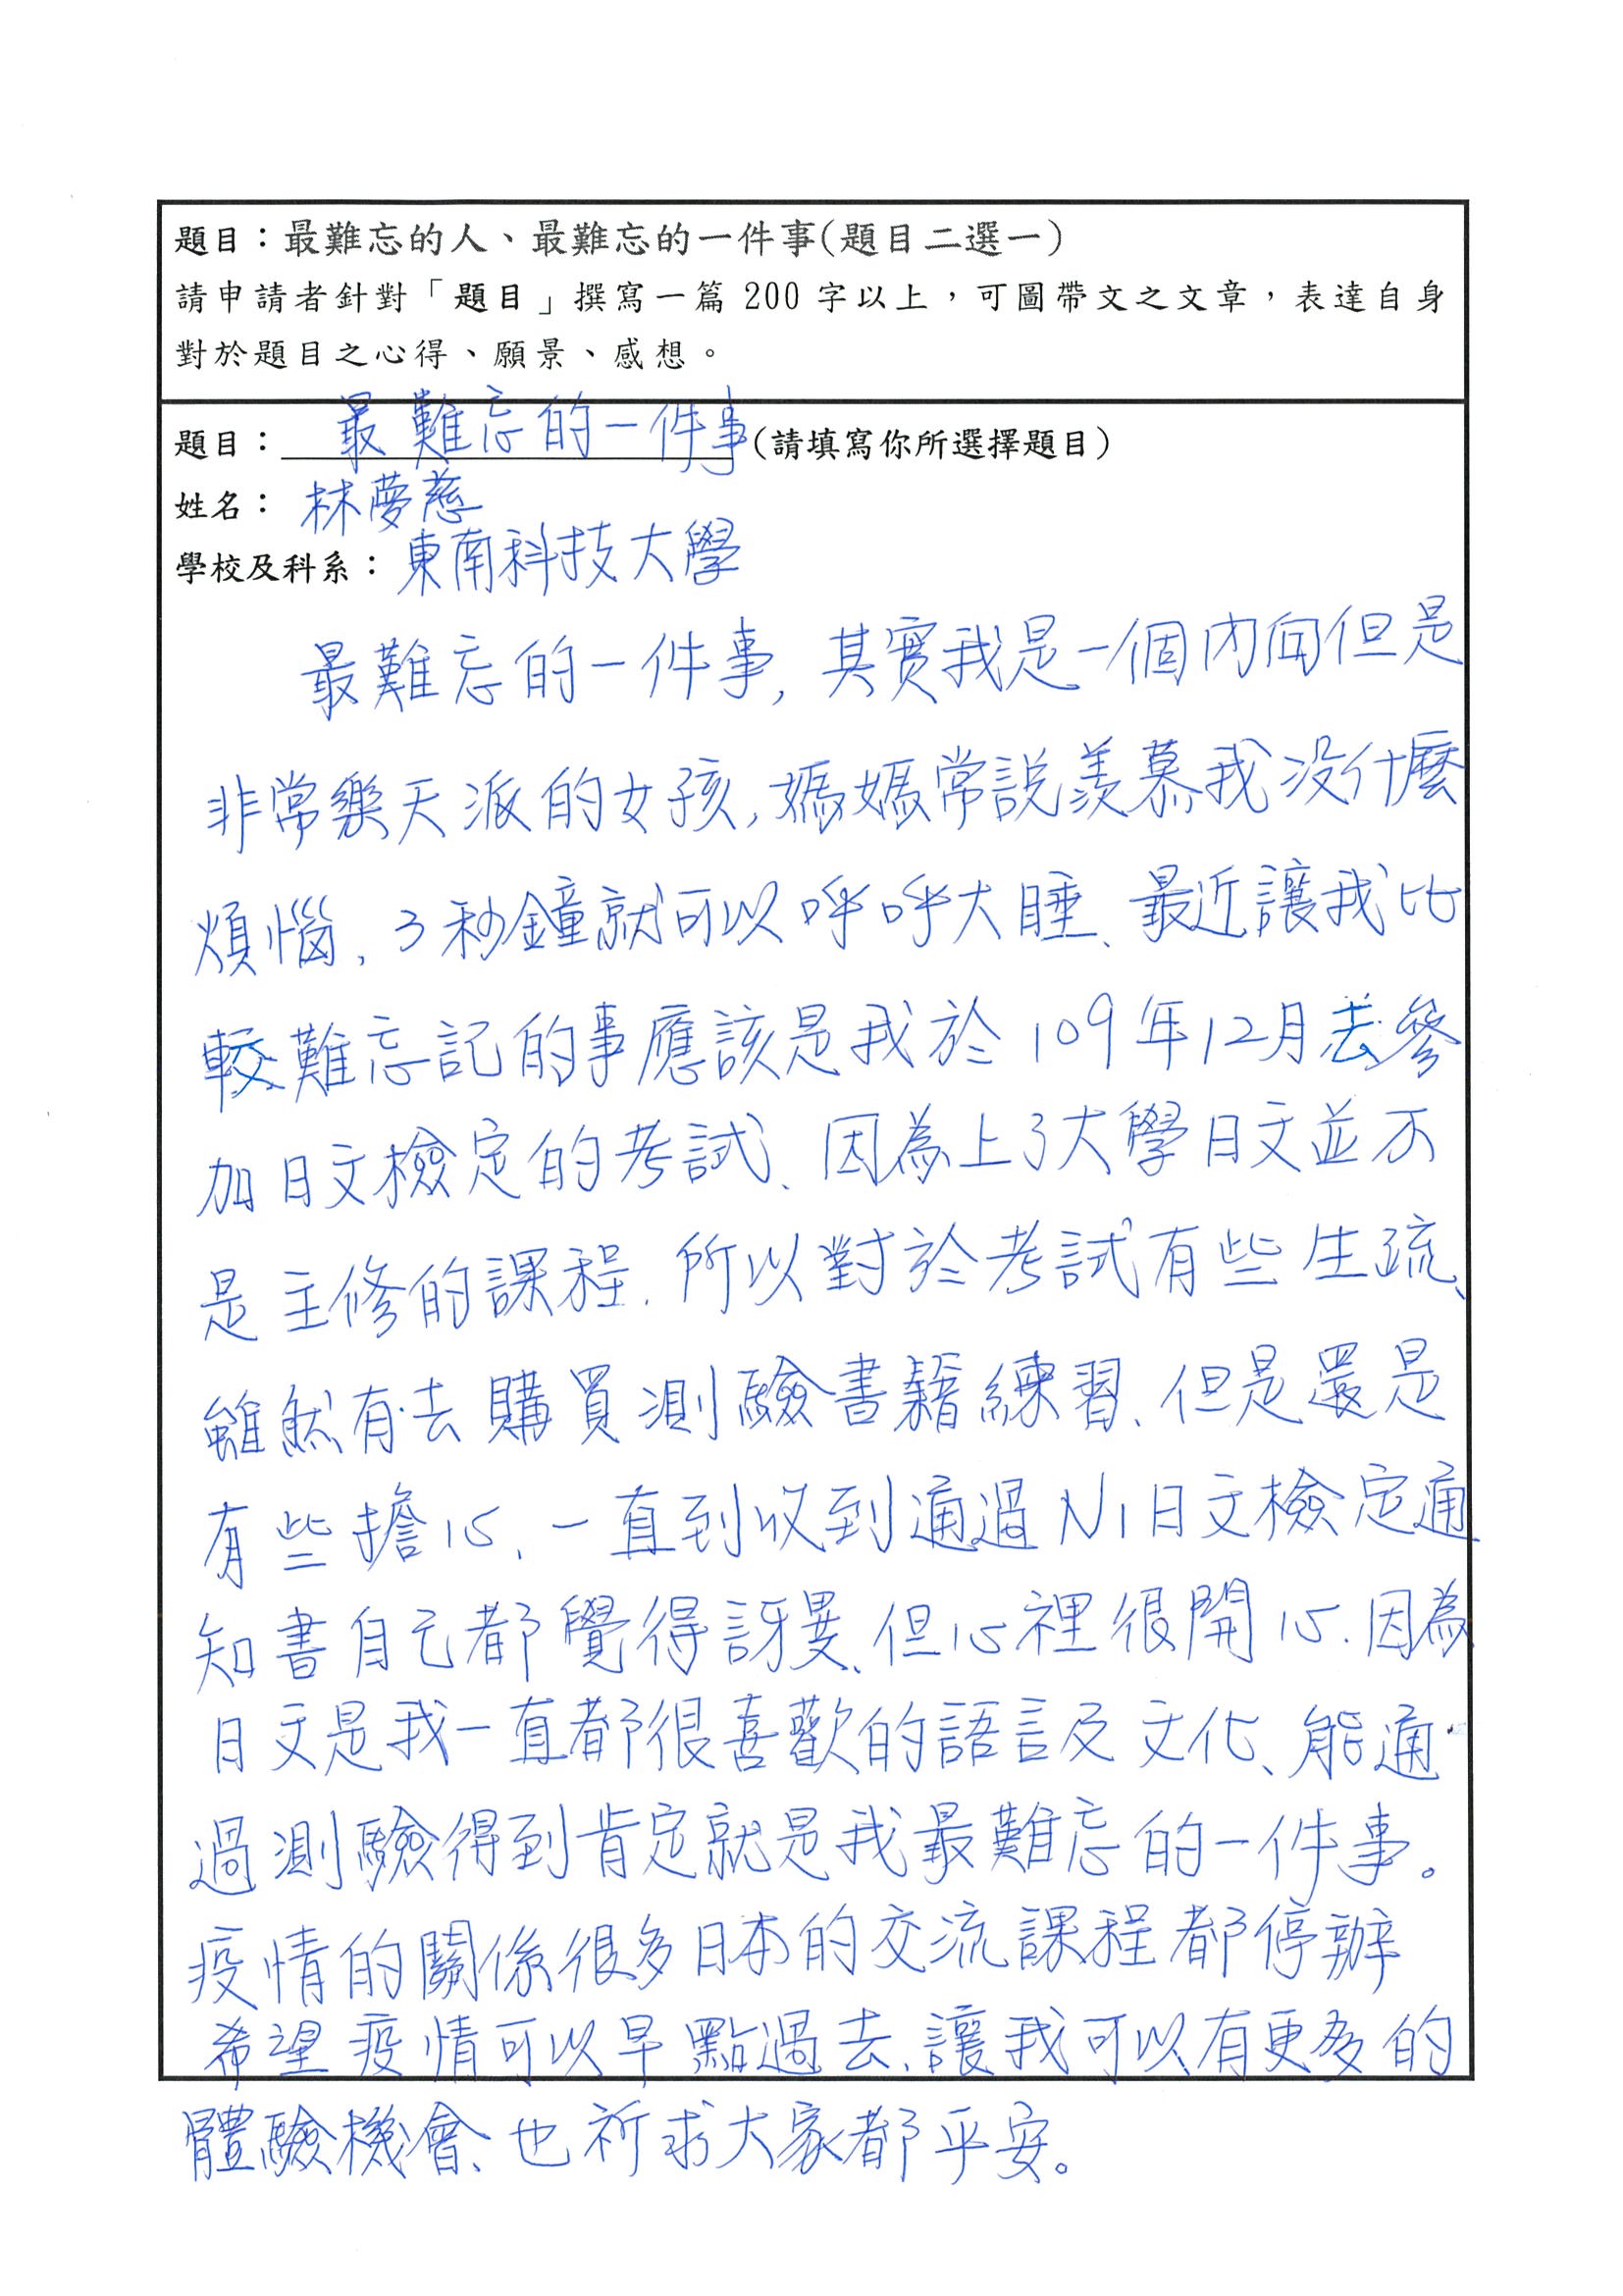 題目：最難忘的人、最難忘的一件事(題目二選一)
請申請者針對「題目」撰寫一篇 200 字以上，可圖帶文之文章，表達自身
對於題目之心得、願景、感想。
題目：最難忘的一件事(請填寫你所選擇題目)
姓名：林夢慈
學校及科系：東南科技大學
最難忘的一件事,其實我是一個內向但是
非常樂天派的女孩,媽媽常說羨慕我沒什麼
煩惱、3秒鐘就可以呼呼大睡、最近讓我比
較難忘記的事應該是我於109年12月去參
加日文檢定的考試、因為上了大學日文並不
是主修的課程、所以對於考試有些生疏、
雖然有去購買測驗書籍練習、但是還是
有些擔心、一直到收到通過N1日文檢定通
知書自己都覺得訝異、但心裡很開心、因為
日文是我一直都很喜歡的語言及文化、能通
過測驗得到肯定就是我最難忘的一件事。
疫情的關係很多日本的交流課程都停辦
希望疫情可以早點過去、讓我可以有更多的
體驗機會、也祈求大家都平安。